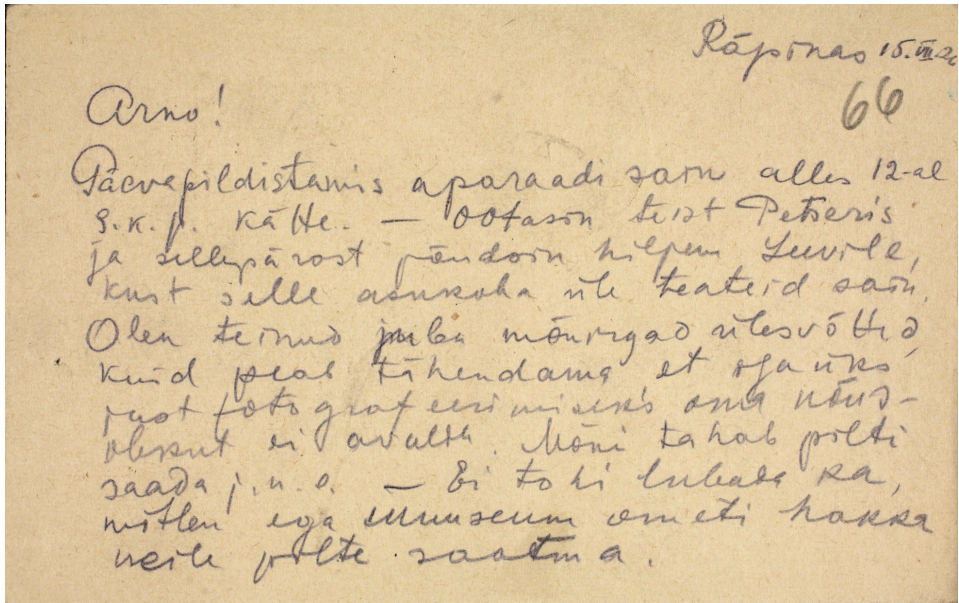 Räpinas 15.VII.2
66
Arno!
Päevapildistamis aparaadi sain alles 12-al
s.k.p. kätte. — Ootasin teist Petseris
ja sellepärast pöördsin hiljem Leevile,
kust selle asukoha üle teateid sain.
Olen teinud juba mõningad ülesvõtted,
kuid peab tähendama et iga üks
just fotografeerimiseks oma nõus-
olekut ei avalda. Mõni tahab pilti
saada j.n.e. — Ei tohi lubada ka,
mõtlen ega Muuseum ometi hakka
neile pilte saatma.